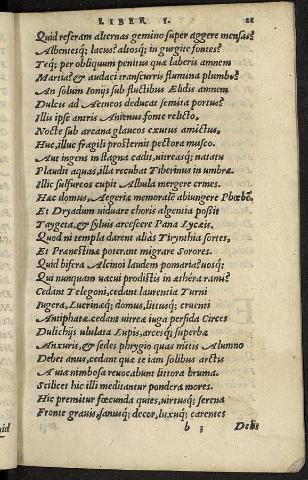 LIBER I.
Quid referam alternas gemino super aggere mensas?
Albentesq; lacus? altosq; in gurgite fontes?
Teq; per obliquum penitus quæ laberis amnem
Martia? & audaci transcurris flumina plumbo?
An solum Ionijs sub fluctibus Elidis amnem
Dulcis ad Aetneos deducat semita portus?
Illis ipse antris Anienus fonte relicto,
Nocte sub arcana glaucos exutus amictus,
Huc, illuc fragili prosternit pectora musco.
Aut ingens in stagna cadit, uitreasq; natatu
Plaudit aquas, illa recubat Tiberinus in umbra.
Illic sulfureos cupit Albula mergere crines.
Hæc domus, Aegeriæ memoralē abiungere Phœbē,
Et Dryadum uiduare choris algentia possit
Taygeta, & syluis arcessere Pana Lycæis.
Quod ni templa darent aliàs Tirynthia sortes,
Et Prænestinæ poterant migrare Sorores.
Quid bifera Alcinoi laudem pomaria? uosq;
Qui nunquam uacui prodistis in æthera rami?
Cedant Telegoni, cedant laurentia Turni
Iugera, Lucrinæq; domus, littusq; cruenti
Antiphatæ, cedant uitreæ iuga perfida Circes
Dulichijs ululata Lupis, arcesq; superbæ
Anxuris, & sedes phrygio quas mitis Alumno
Debet anus, cedant quæ te iam solibus arctis
Auia nimbosa reuocabunt littora bruma.
Scilicet hic illi meditantur pondera mores.
Hic premitur fœcunda quies, uirtusq; serena
Fronte grauis, sanusq; decor, luxuq; carentes
b 3 Deli